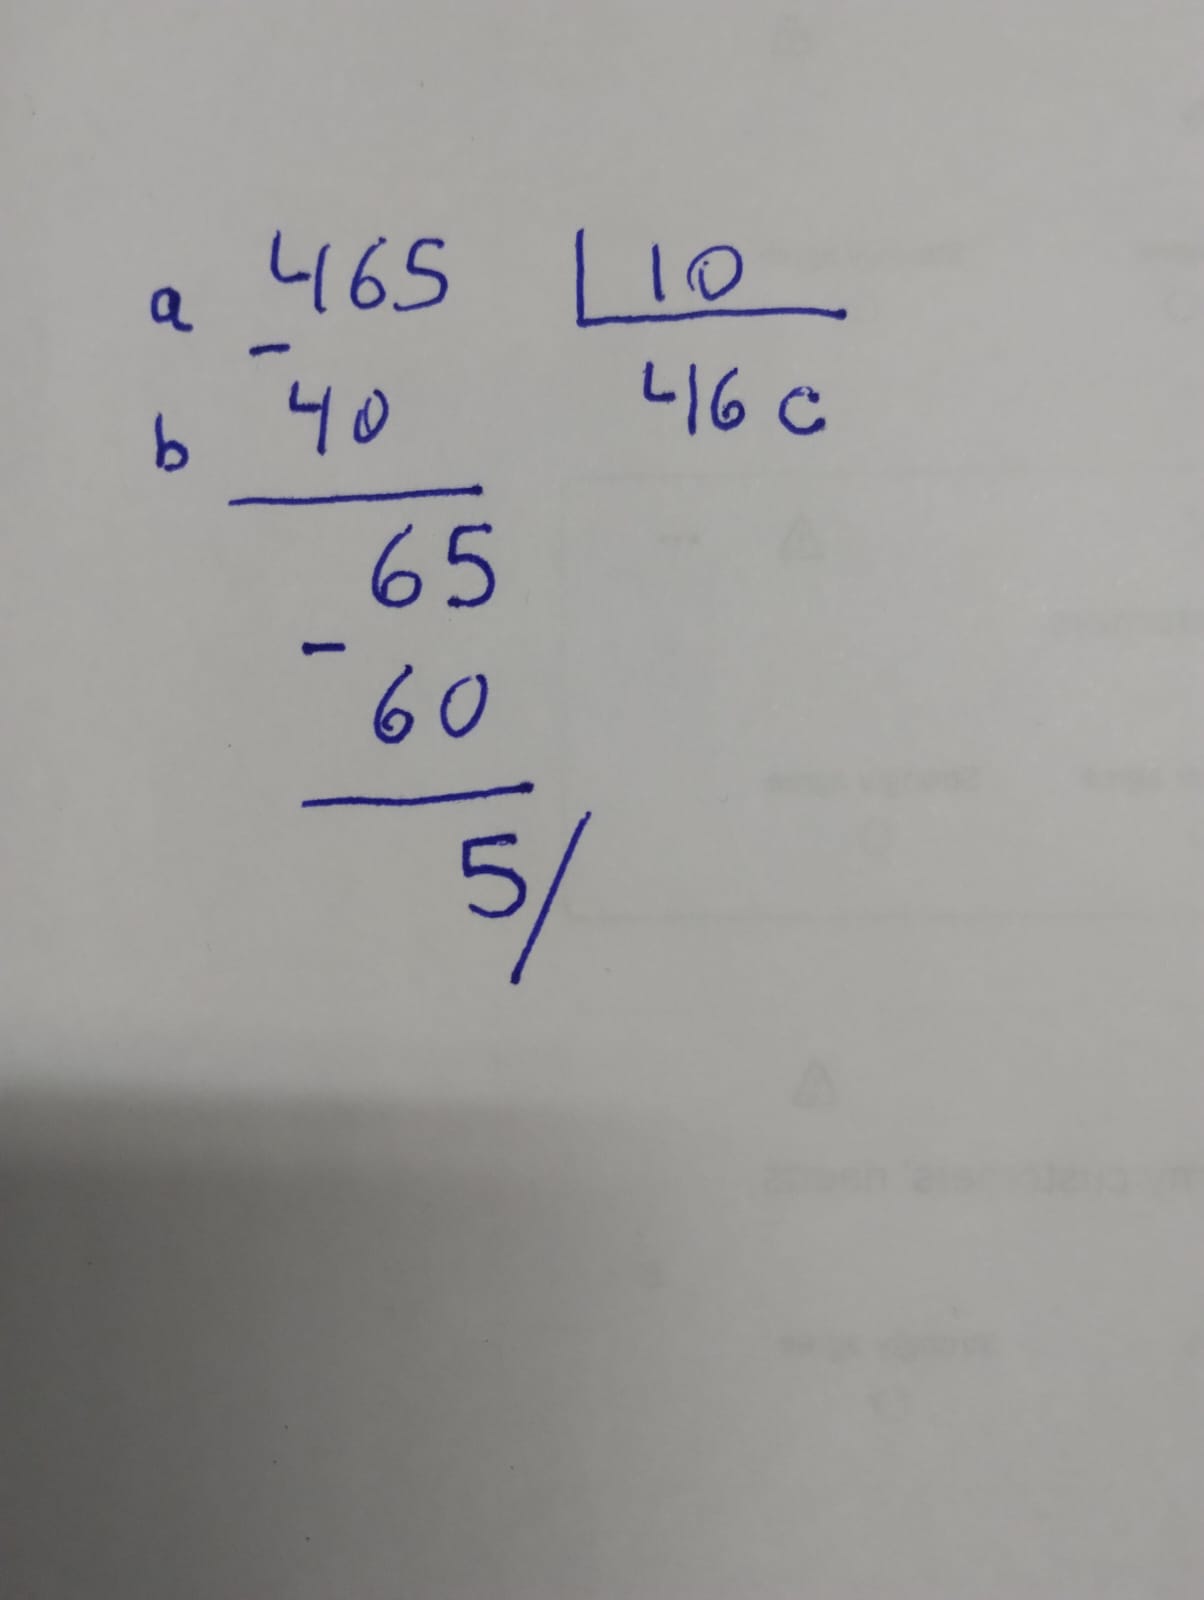 a 465 10
-
b 40 46 c
65
-
60
5/